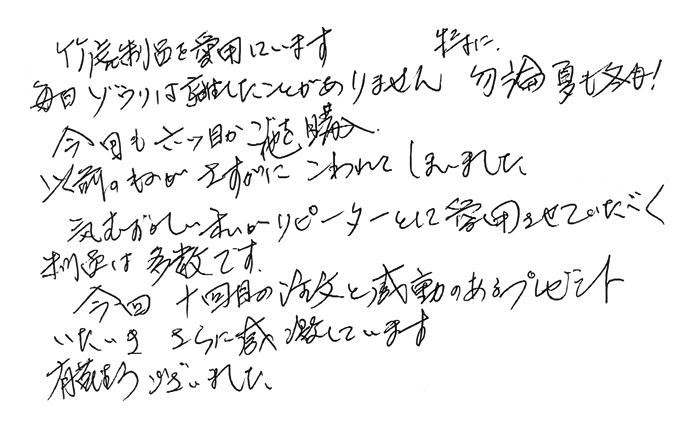 竹虎製品を愛用しています
特に
毎日ゾウリは離したことがありません 勿論夏も冬も!
今回も六つ目か 購入
以前のものがさすがにこわれてしまいました。
気むずかしい リピーターとして愛用させていただく
製品は多数です。
今回 十回目の注文と感動のあるプレゼント
いただき さらに感激しています
有難うございました。